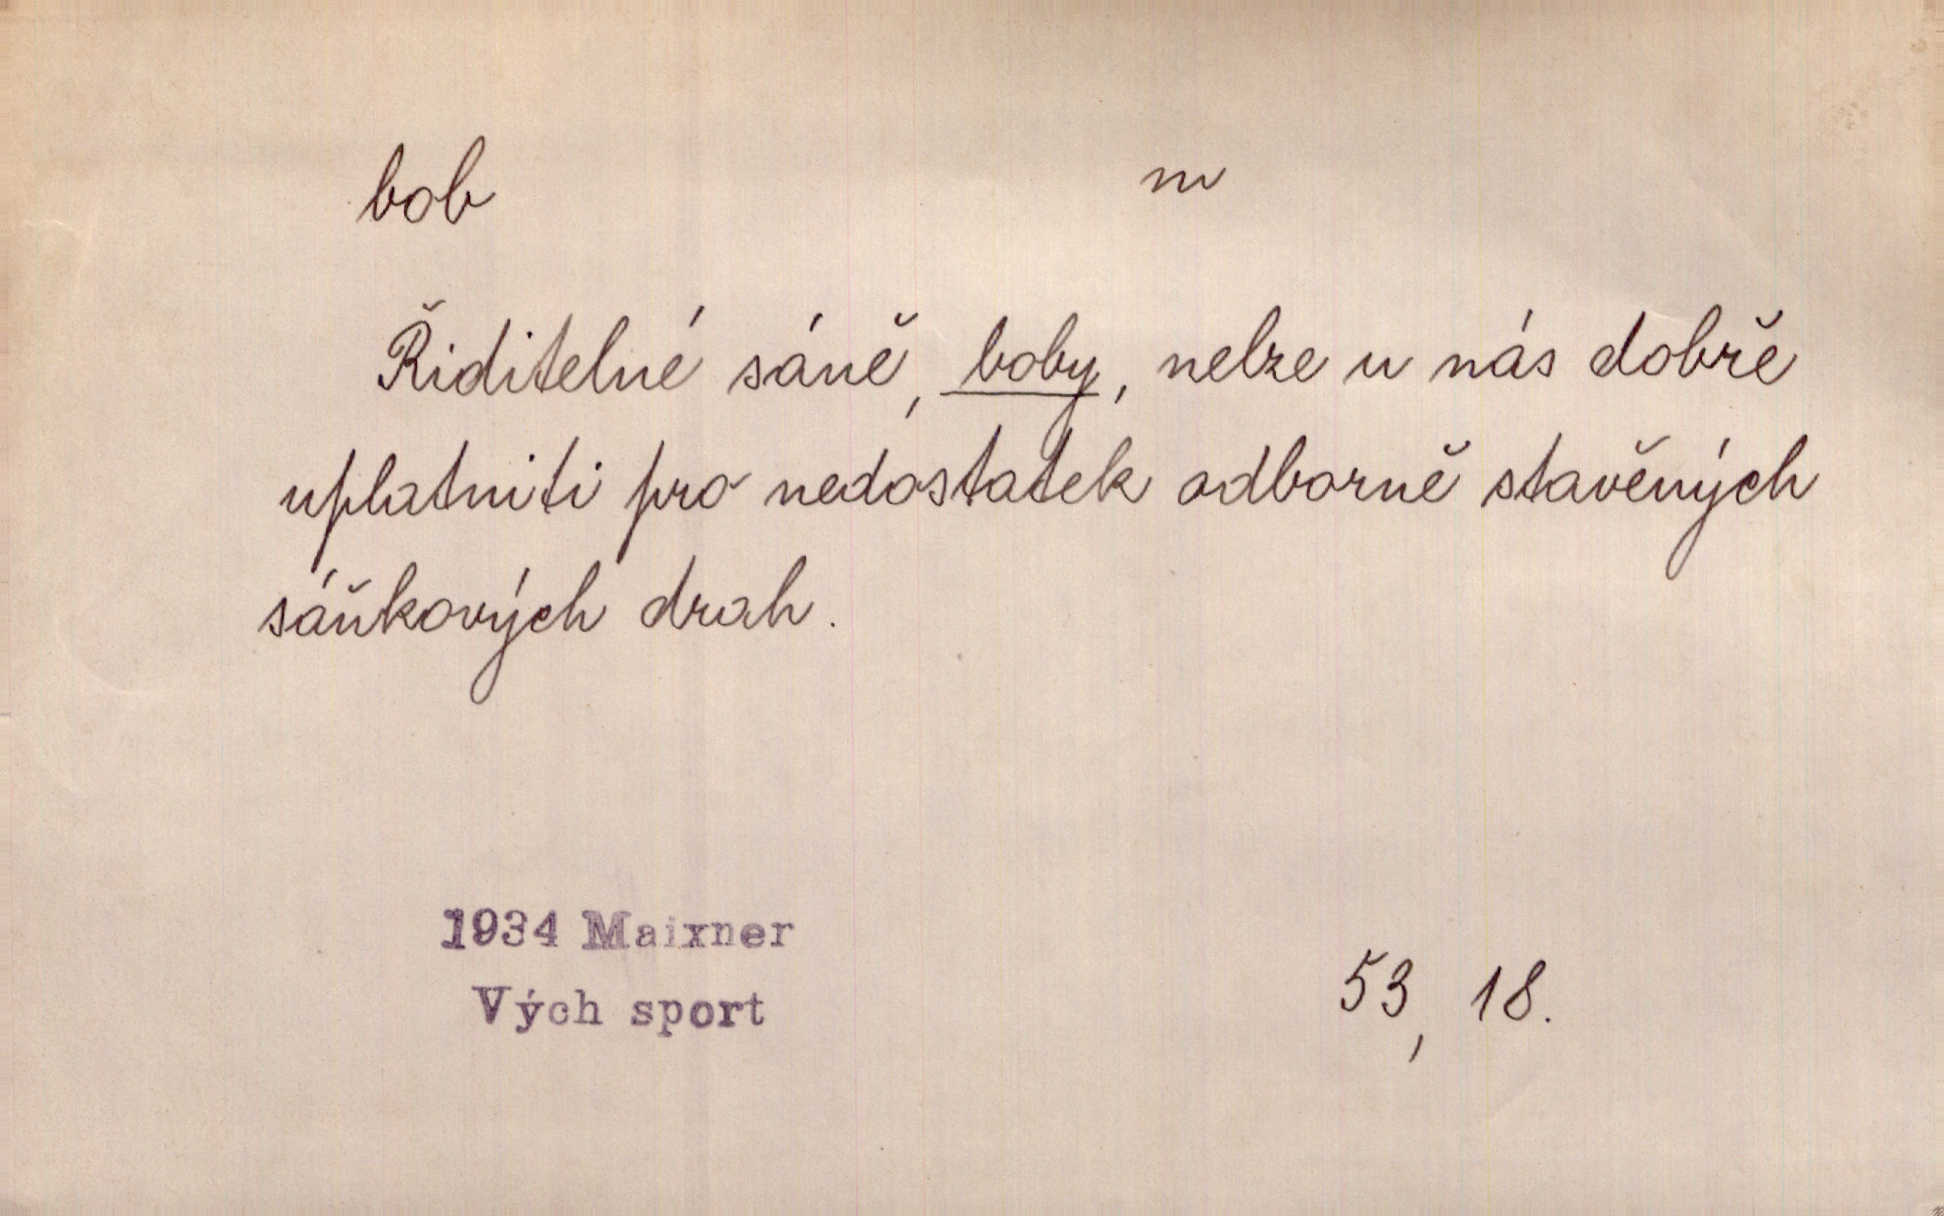 bob m
Řiditelné sáně, boby, nelze u nás dobře
uplatniti pro nedostatek odborně stavěných
sáňkových drah.
1934 Maixner
Vých sport
53, 18.